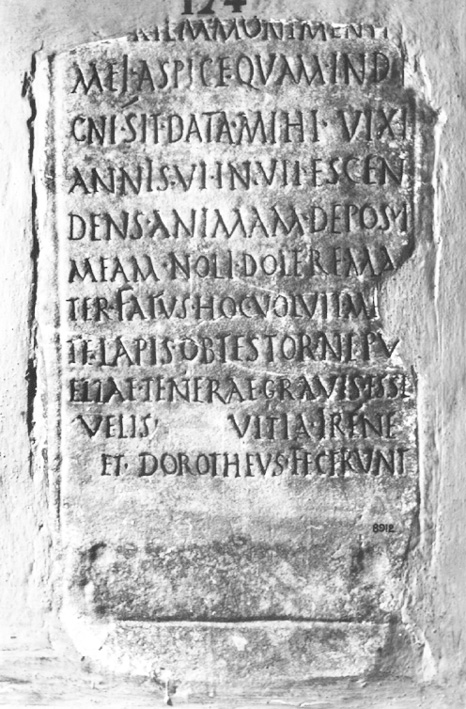 MONIMENTI
MEI·ASPICE·QVAM·INDI
CNI·SIT·DATA·MIHI·VIXI
ANNIS·VI·IN·VII·ESCEN
DENS·ANIMAM·DEPOSVI
MEAM·NOLI·DOLERE·MA
TER·FATVS·HOC·VOLVIT·MI
TE·LAPIS·OBTESTOR·NE·PV
ELLAE·TENERAE·GRAVIS·ESSE
VELIS· VITIA·IRENE
ET·DOROTHEVS·FECERVNT
8912